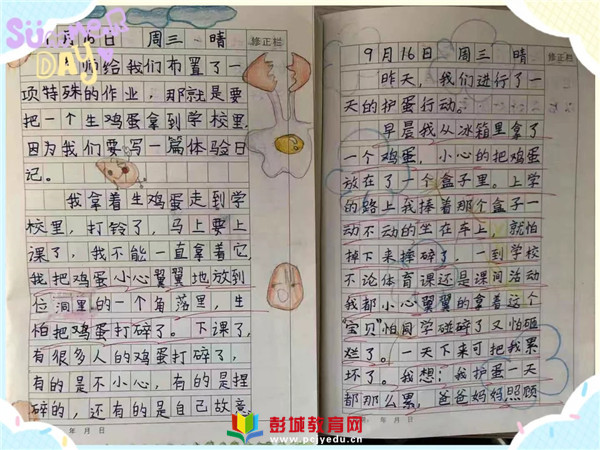 Summer
DAY
月16日 周三 晴
修正栏
师给我们布置了一
项特殊的作业，那就是要
把一个生鸡蛋拿到学校里，
因为我们要写一篇体验日
记。
我拿着生鸡蛋走到学
校里，打铃了，马上要上
课了，我不能一直拿着它
我把鸡蛋小心翼翼地放到
位洞里的一个角落里，生
怕把鸡蛋打碎了。下课了，
有很多人的鸡蛋打碎了，
有的是不小心，有的是捏
碎的，还有的是自己故意
年 月 日
9月16日 周三 晴
修正栏
昨天，我们进行了一
天的护蛋行动。
早晨我从冰箱里拿了
一个鸡蛋，小心的把鸡蛋
放在了一个盒子里。上学
的路上我捧着那个盒子一
动不动的坐在车上，就怕
掉下来摔碎了，一到学校
不论体育课还是课间活动
我都小心翼翼的拿着这个
“宝贝”怕同学碰碎了又怕砸
烂了。一天下来可把我累
坏了。我想：我护蛋一天
都那么累，爸爸妈妈照顾
年 月 日
彭城教育网
www.pcjyedu.cn